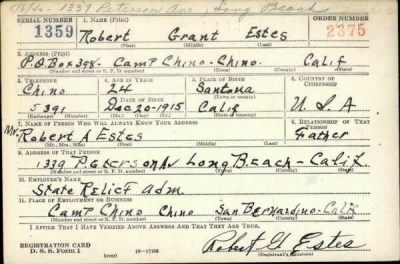 1339 Peterson Ave - Long Beach
SERIAL NUMBER 1. NAME (Print) ORDER NUMBER
1359 Robert Grant Estes 2375
(First) (Middle) (Last)
2. ADDRESS (Print)
P.O. Box 398- Camp Chino-Chino. Calif
(Number and street or R. F. D. number) (Town) (County) (State)
3. TELEPHONE 4. AGE IN YEARS 5. PLACE OF BIRTH 6. COUNTRY OF CITIZENSHIP
Chino 24 Santa na
DATE OF BIRTH
5391 Dec 20-1915 Calif U.S.A
7. NAME OF PERSON WHO WILL ALWAYS KNOW YOUR ADDRESS 8. RELATIONSHIP OF THAT PERSON
Mr. Robert A Estes Father
(Mr., Mrs., Miss) (First) (Middle) (Last)
9. ADDRESS OF THAT PERSON
1339 Peterson Av Long Beach - Calif.
(Number and street or R. F. D. number) (Town) (County) (State)
10. EMPLOYER'S NAME
State Relief Adm.
11. PLACE OF EMPLOYMENT OR BUSINESS
Camp Chino Chino San Bernardino-Calif
(Number and street or R. F. D. number) (Town) (County) (State)
I AFFIRM THAT I HAVE VERIFIED ABOVE ANSWERS AND THAT THEY ARE TRUE.
REGISTRATION CARD
D. S. S. Form 1 (over) 16-17105 Robert G Estes